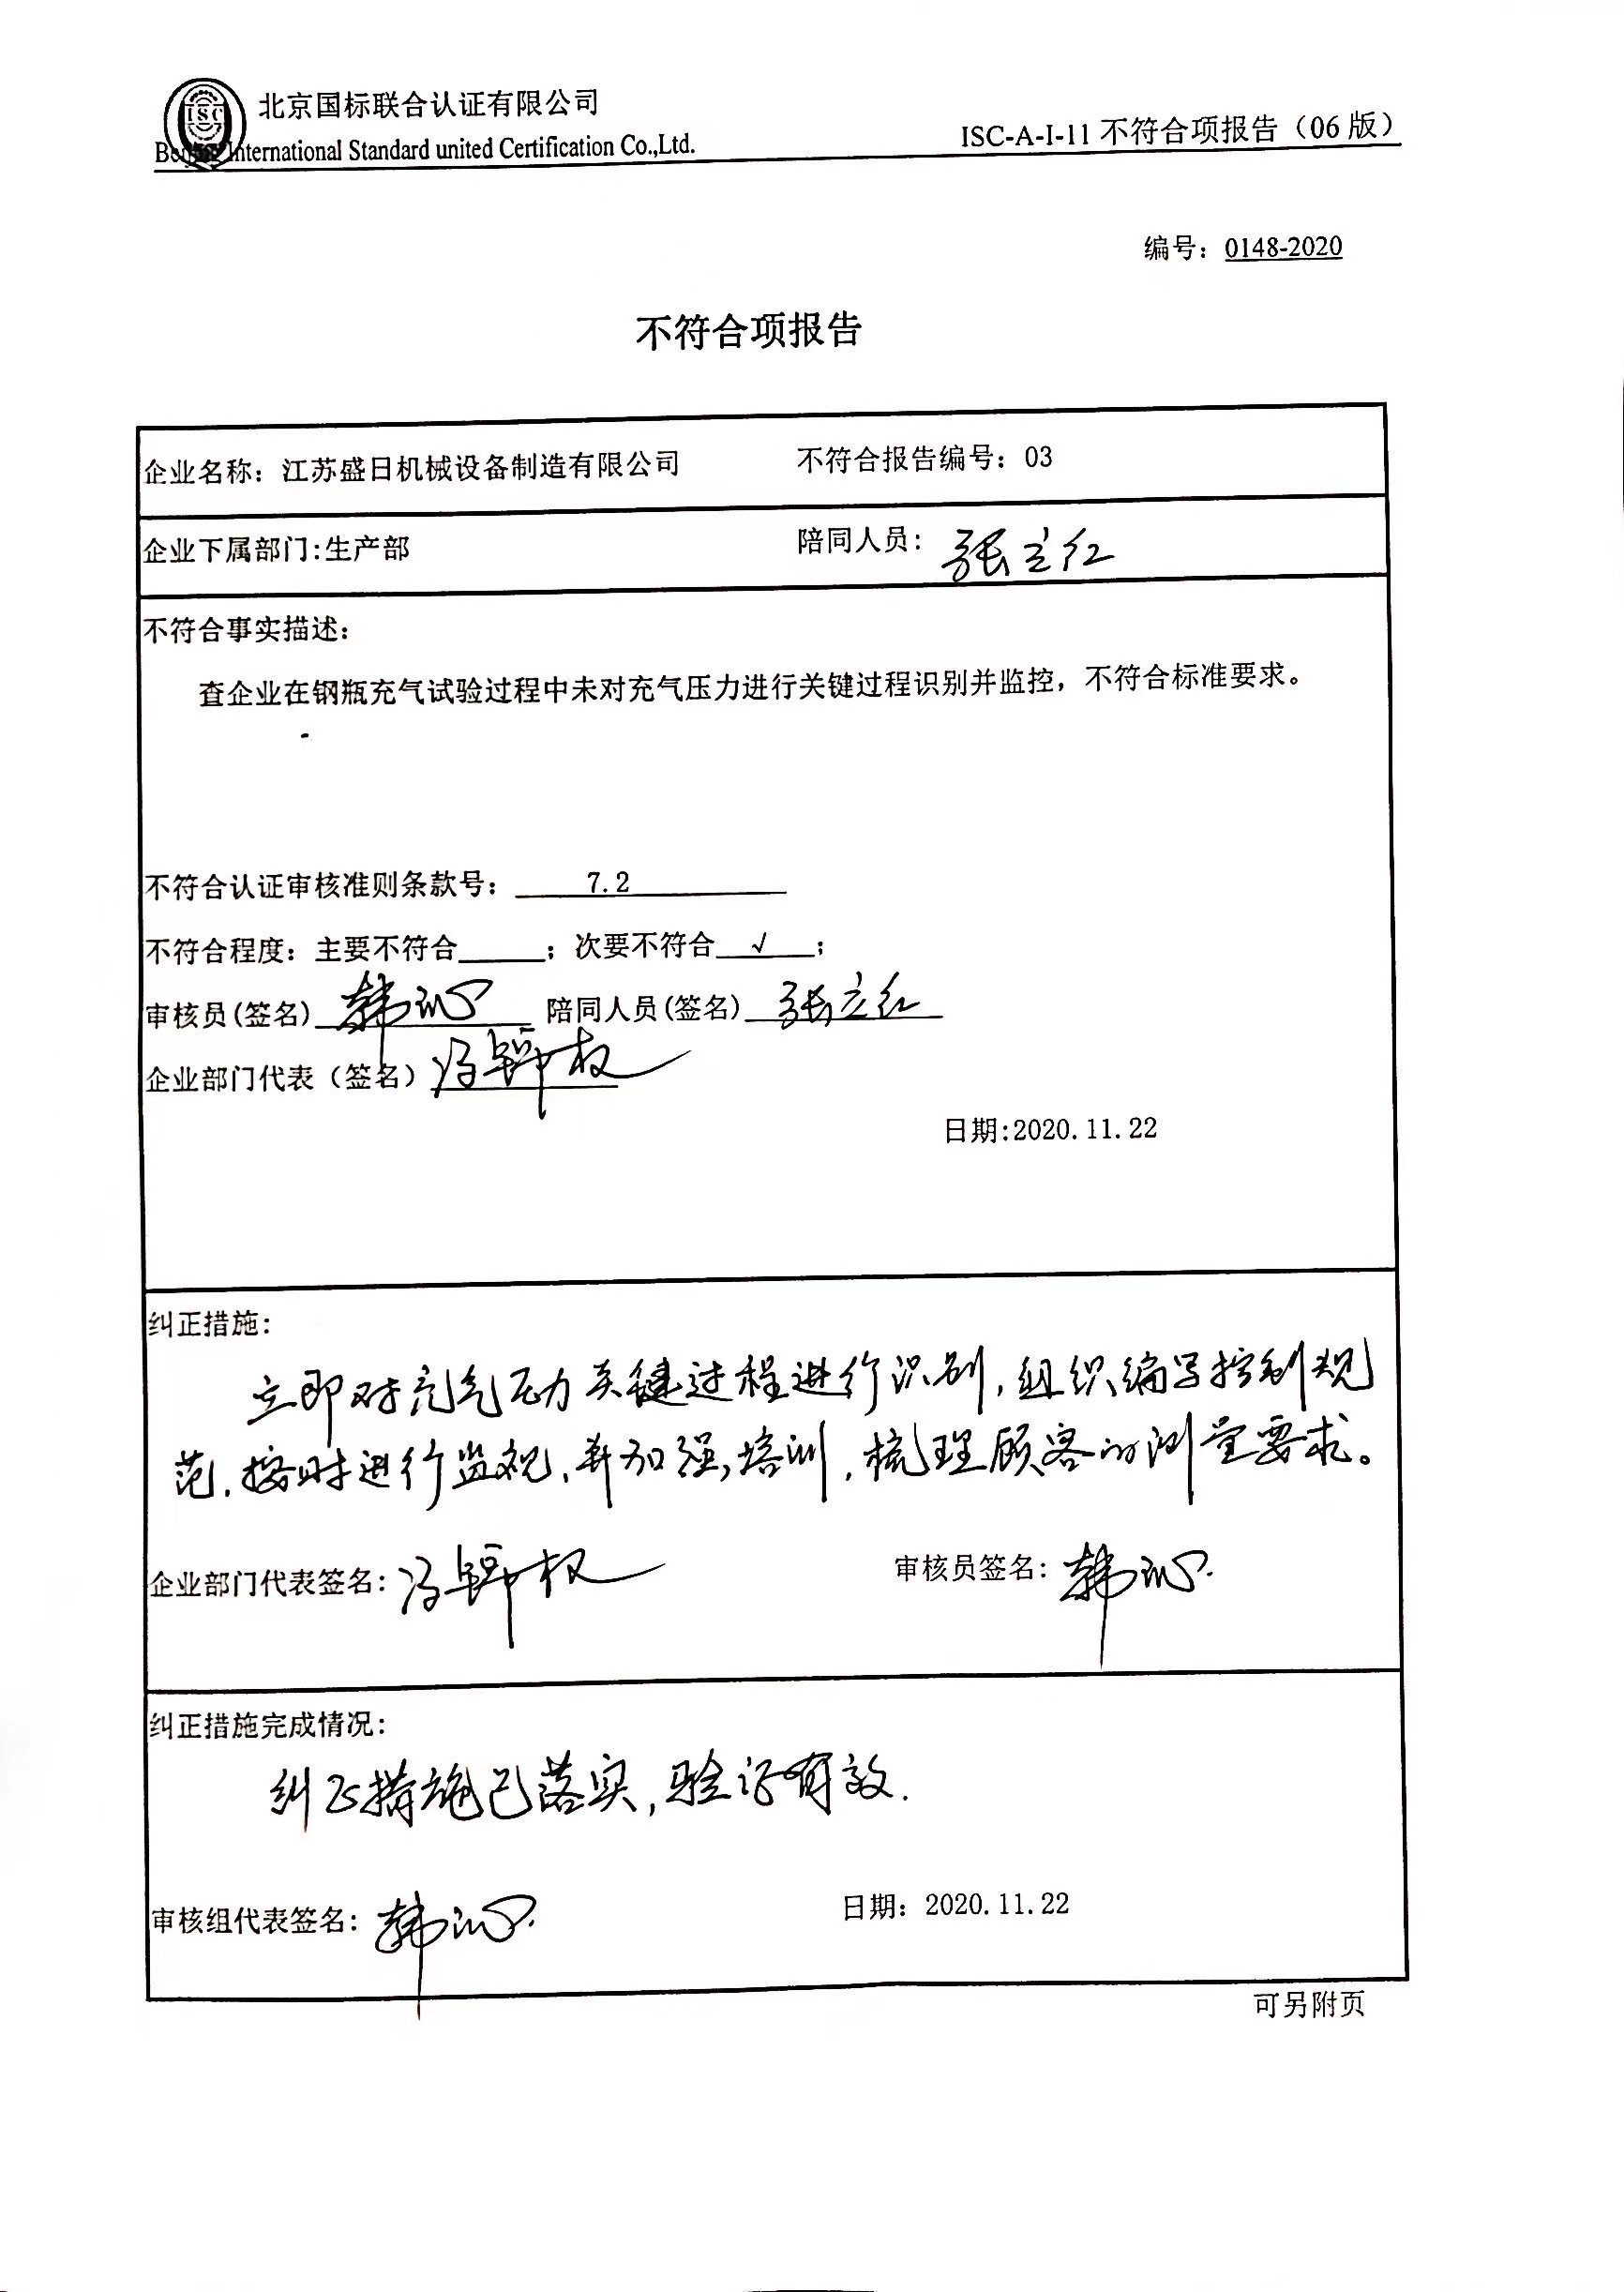 ISC
北京国标联合认证有限公司
Beijing International Standard united Certification Co.,Ltd.
ISC-A-I-11 不符合项报告（06 版）
编号：0148-2020
不符合项报告
企业名称：江苏盛日机械设备制造有限公司 不符合报告编号：03
企业下属部门:生产部 陪同人员：张立红
不符合事实描述：
查企业在钢瓶充气试验过程中未对充气压力进行关键过程识别并监控，不符合标准要求。
不符合认证审核准则条款号： 7.2
不符合程度：主要不符合______；次要不符合 √ ；
审核员(签名) 陪同人员(签名) 张立红
企业部门代表（签名）
日期:2020.11.22
纠正措施：
立即对充气压力关键过程进行识别，组织编写控制规
范，按时进行监视，并加强培训，梳理顾客的测量要求。
企业部门代表签名： 审核员签名：
纠正措施完成情况：
纠正措施已落实，验证有效.
审核组代表签名： 日期：2020.11.22
可另附页